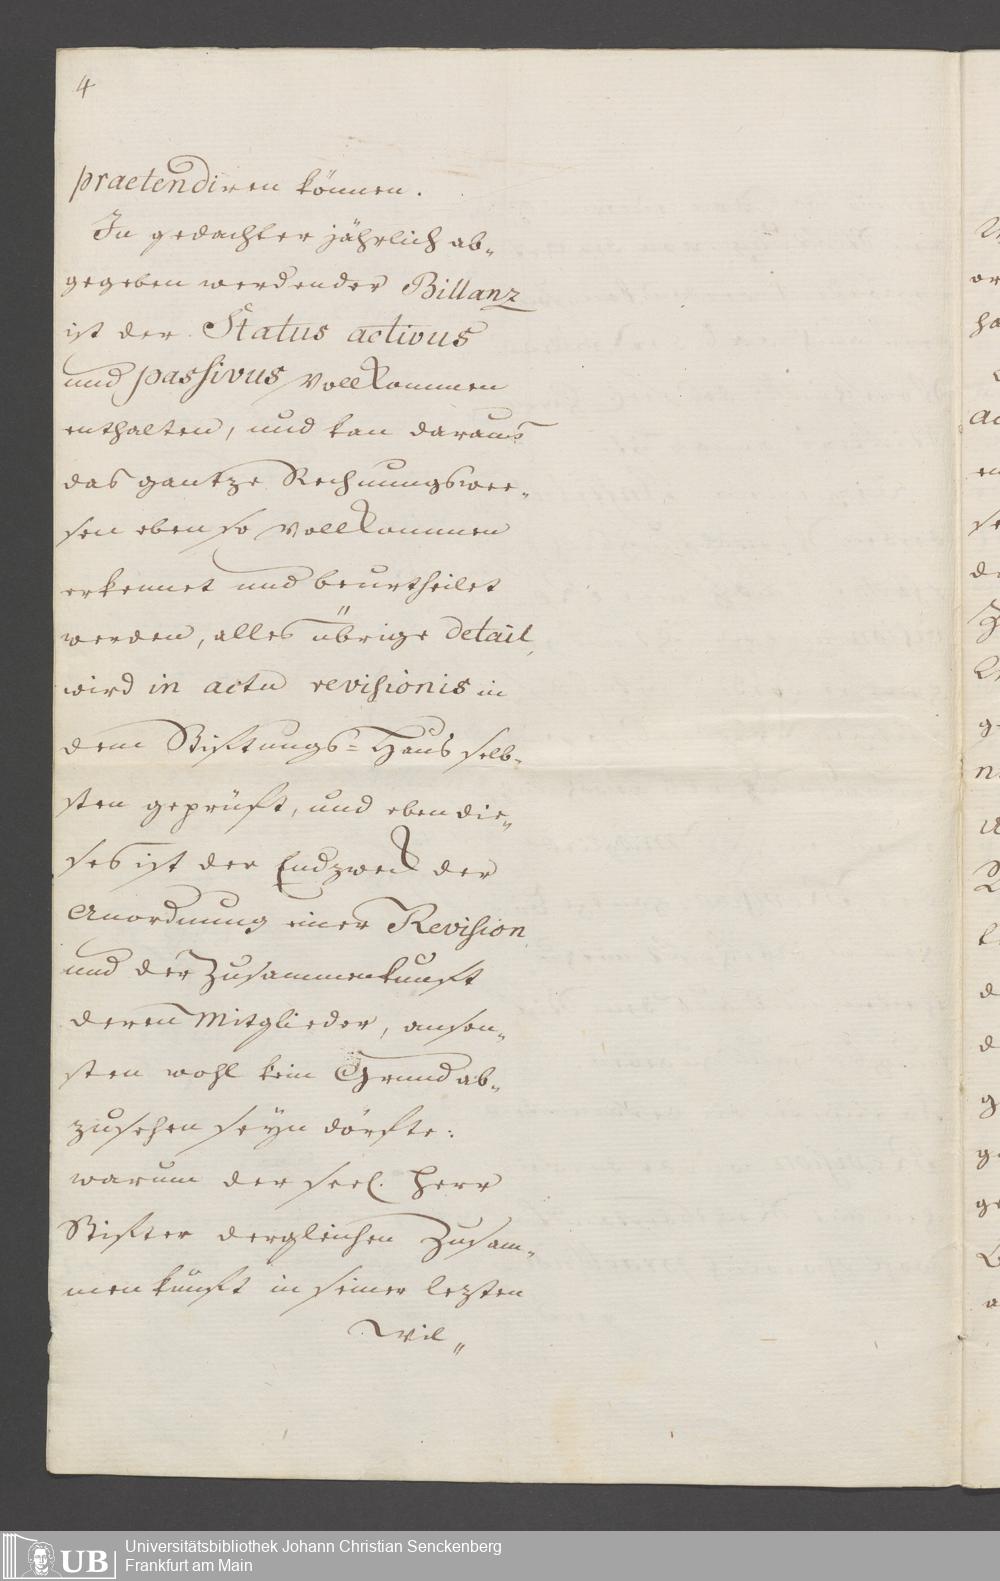 4
praetendiren können.
In gedachter jährlich ab„
gegeben werdender Billanz
ist der Status activus
und passivus vollkommen
enthalten, und kan daraus
das gantze Rechnungswee„
sen eben so vollkommen
erkennet und beurtheilet
werden, alles übrige detail,
wird in actu revisionis in
dem Stiftungs=Haus selb„
sten geprüft, und eben die„
ses ist der Endzweck der
Anordnung einer Revision
und der Zusammenkunft
deren Mitglieder, anson„
sten wohl kein Grund ab„
zusehen seyn dörfte:
warum der seel. Herr
Stifter dergleichen Zusam„
menkunft in seiner lezten
Wil„
Universitätsbibliothek Johann Christian Senckenberg
Frankfurt am Main
UB